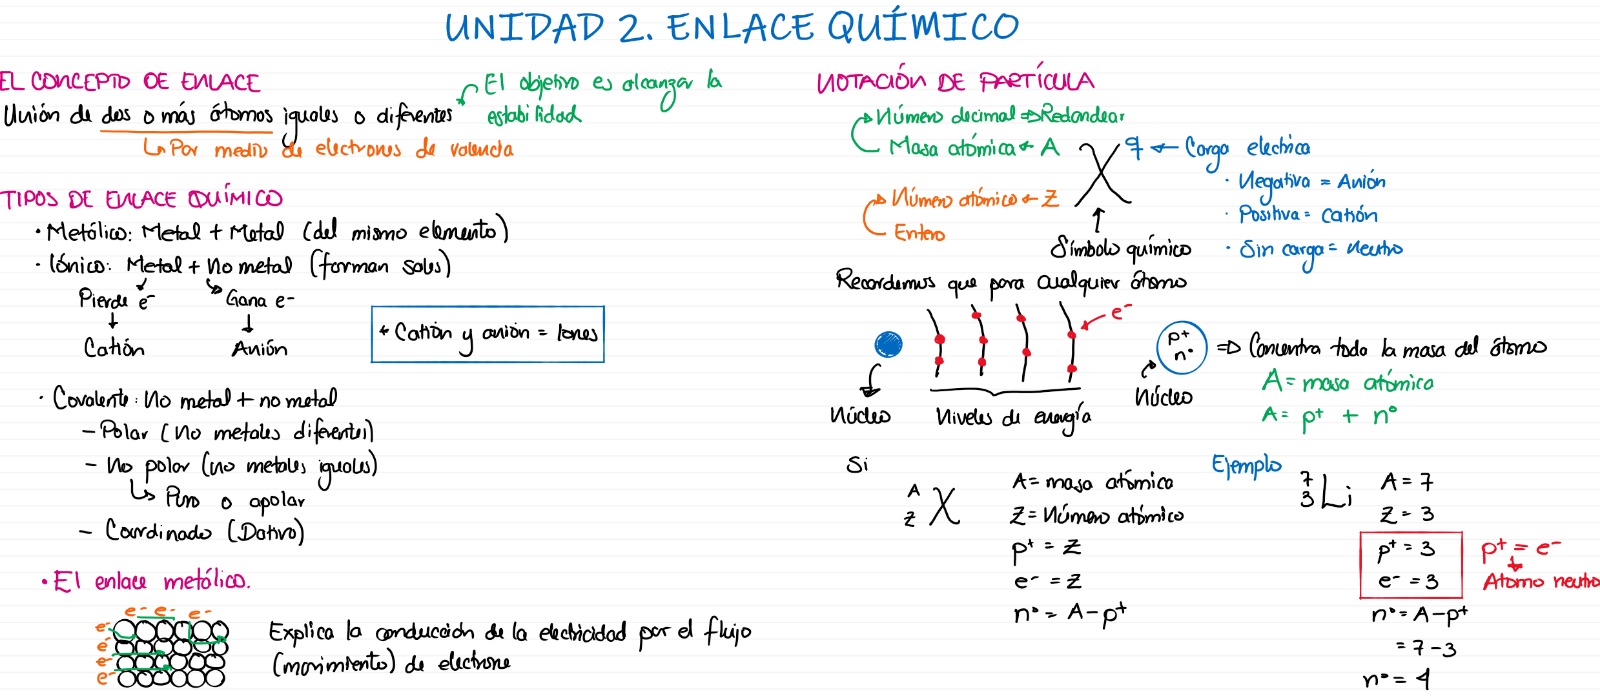 UNIDAD 2. ENLACE QUÍMICO
EL CONCEPTO DE ENLACE
Unión de dos o más átomos iguales o diferentes
El objetivo es alcanzar la
estabilidad
↳ Por medio de electrones de valencia
TIPOS DE ENLACE QUÍMICO
• Metálico: Metal + Metal (del mismo elemento)
• Iónico: Metal + No metal (forman sales)
Pierde e⁻ Gana e⁻
↓ ↓
Catión Anión
* Catión y anión = Iones
• Covalente: No metal + no metal
– Polar (No metales diferentes)
– No polar (no metales iguales)
↳ Puro o apolar
– Coordinado (Dativo)
• El enlace metálico.
e⁻ e⁻ e⁻
e⁻
e⁻
e⁻
e⁻
Explica la conducción de la electricidad por el flujo
(movimiento) de electrone
NOTACIÓN DE PARTÍCULA
Número decimal ⇒ Redondear
Masa atómica ← A X q ← Carga electrica
• Negativa = Anión
Número atómico ← Z
• Positiva = Catión
Entero
↑
Símbolo químico
• Sin carga = Neutro
Recordemus que para cualquier átomo
e⁻
p⁺
n°
⇒ Concentra toda la masa del átomo
Núcleo Niveles de energía Núcleo
A = masa atómica
A = p⁺ + n°
Si
A
Z X
A = masa atómica
Z = Número atómico
p⁺ = Z
e⁻ = Z
n° = A – p⁺
Ejemplo
7
3 Li
A = 7
Z = 3
p⁺ = 3
e⁻ = 3
p⁺ = e⁻
↓
Atomo neutro
n° = A – p⁺
= 7 – 3
n° = 4